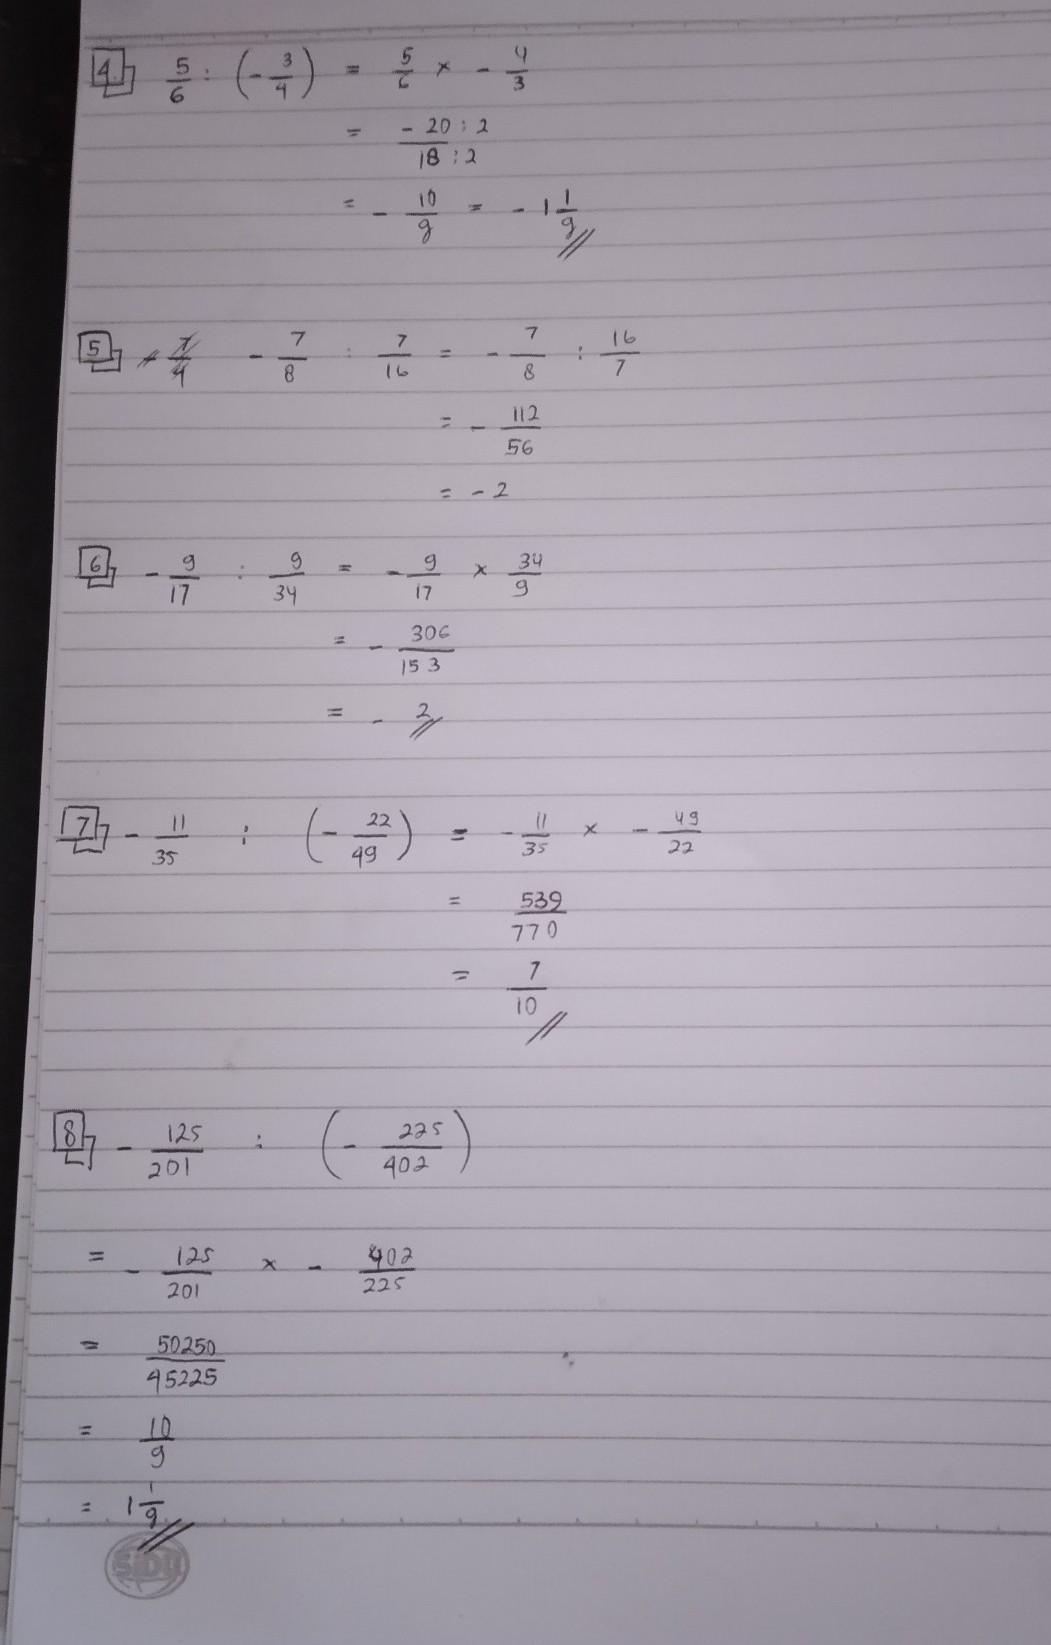 4. 5/6 : (- 3/4) = 5/6 × - 4/3
= - 20 : 2 / 18 : 2
= - 10/9 = - 1 1/9
5 - 7/8 : 7/16 = - 7/8 : 16/7
= - 112/56
= - 2
6 - 9/17 : 9/34 = - 9/17 × 34/9
= - 306/153
= - 2
7 - 11/35 : (- 22/49) = - 11/35 × - 49/22
= 539/770
= 7/10
8 - 125/201 : (- 225/402)
= - 125/201 × - 402/225
= 50250/45225
= 10/9
= 1 1/9
SIDU